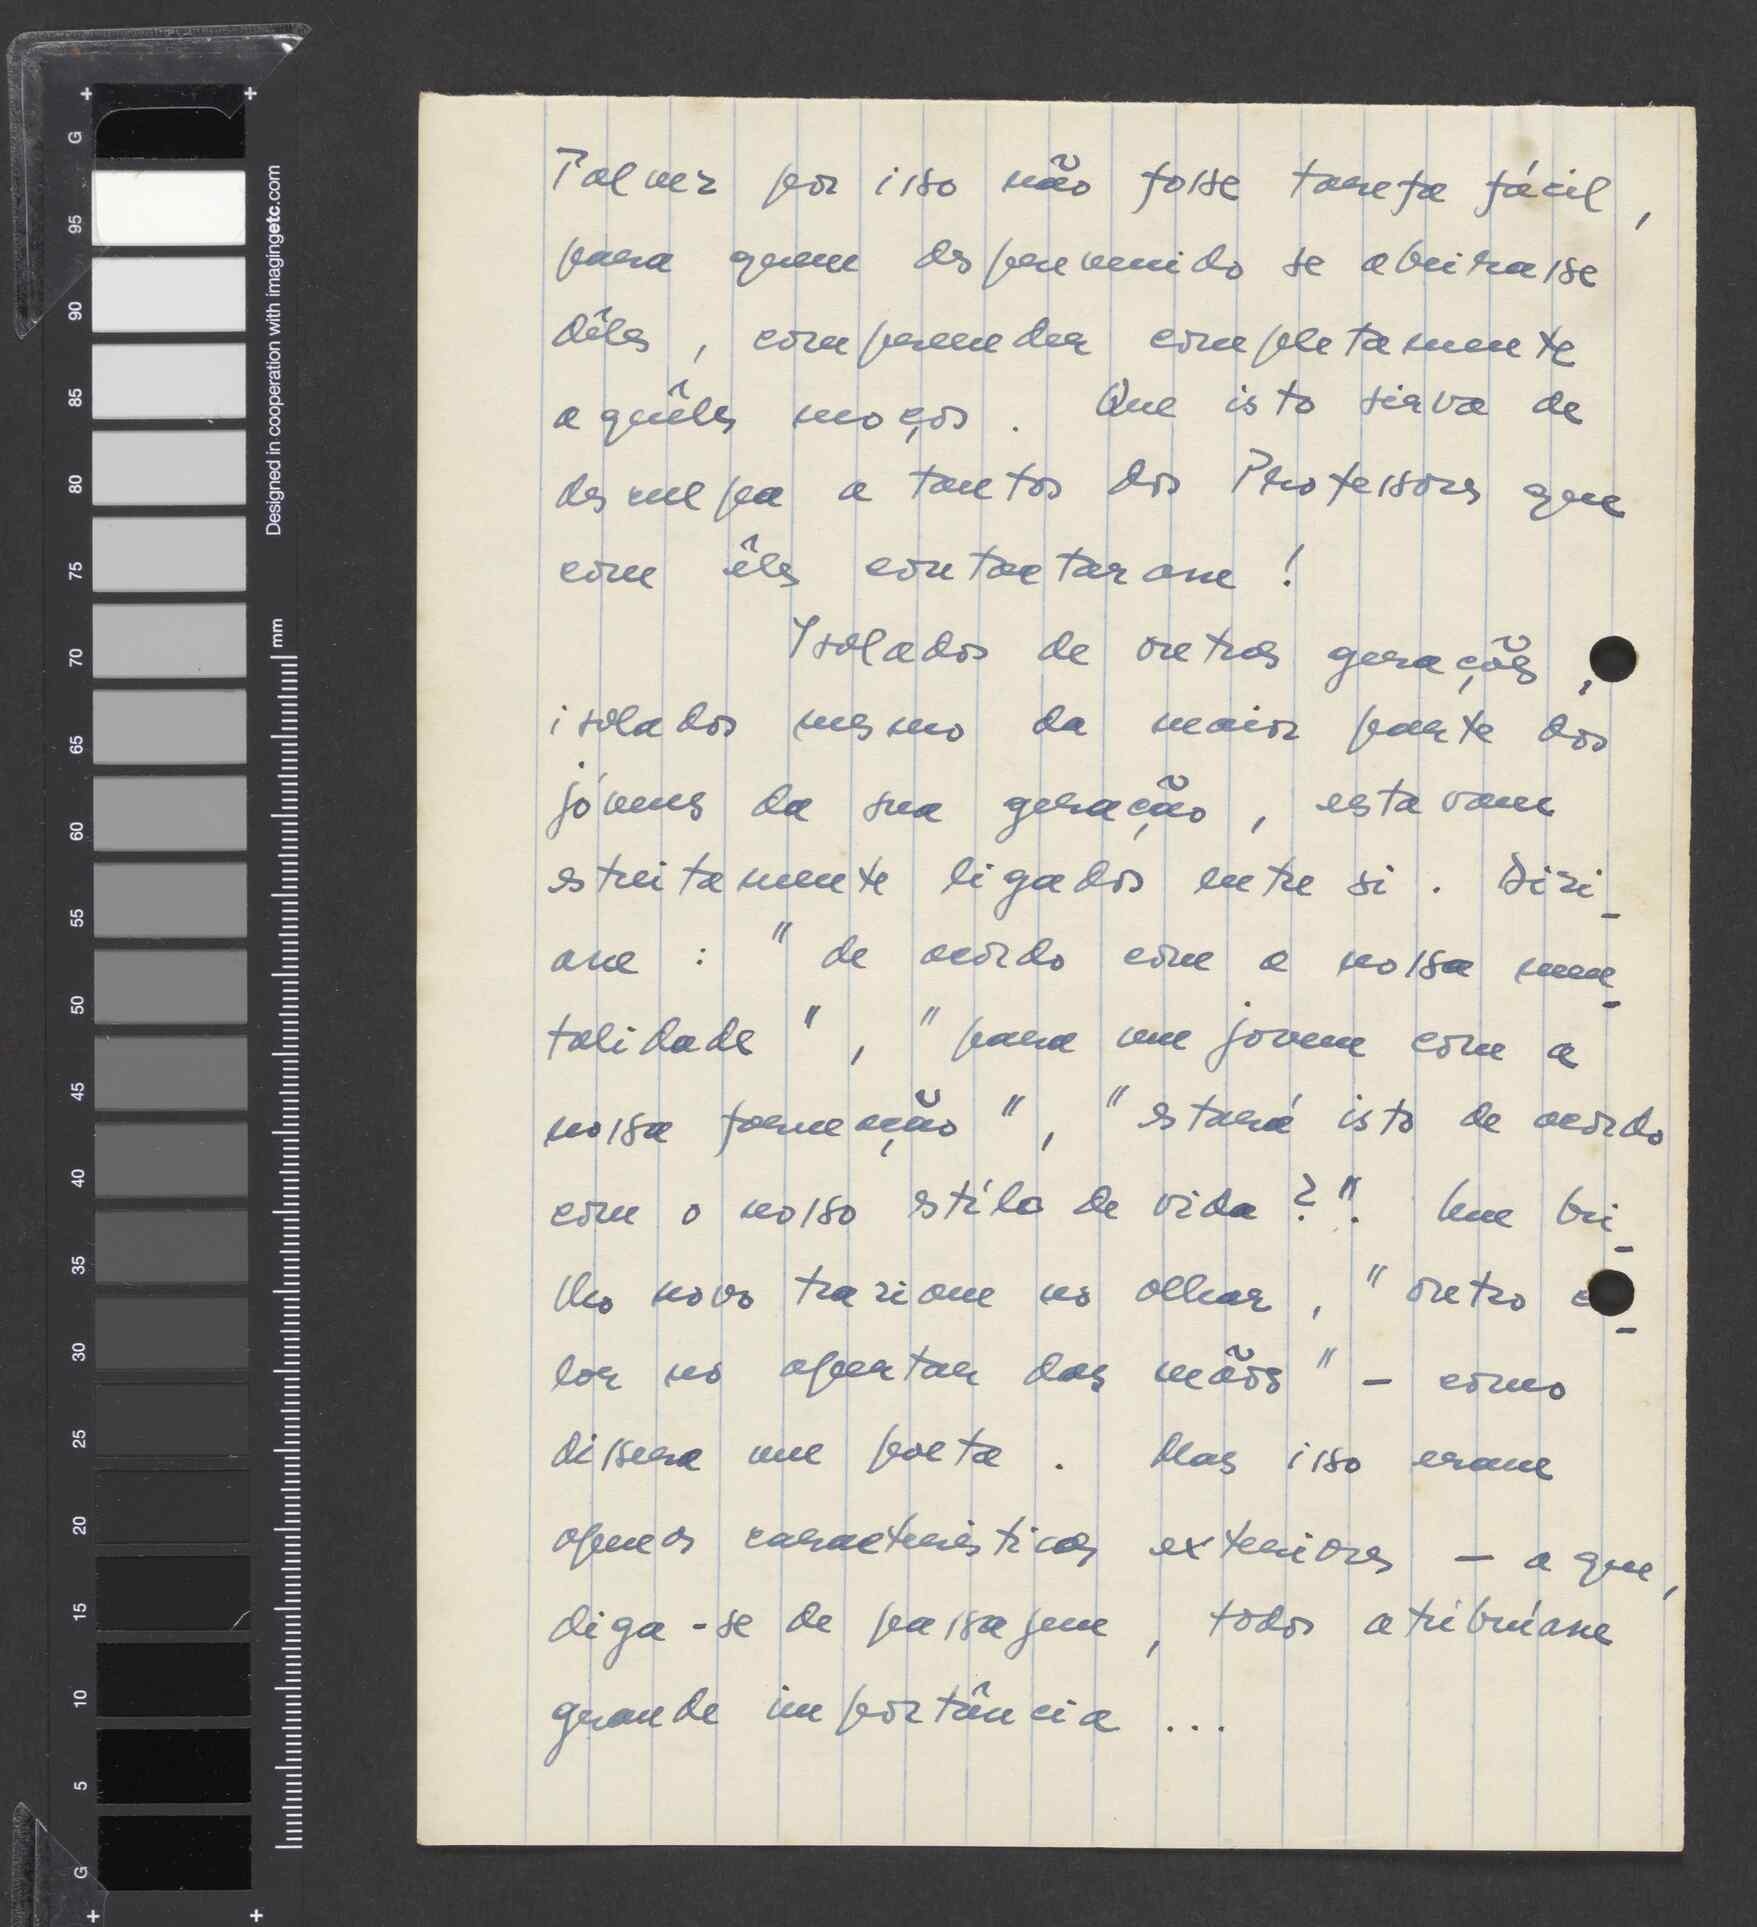 Talvez por isso não fosse tarefa fácil,
para quem desprevenido se abeirasse
dêles, compreender completamente
aquêles moços. Que isto sirva de
desculpa a tantos dos Professores que
com êles contactaram!
Isolados de outras gerações,
isolados mesmo da maior parte dos
jóvens da sua geração, estavam
estreitamente ligados entre si. Dizi-
am: "de acôrdo com a nossa men-
talidade", "para um jovem com a
nossa formação", "estará isto de acôrdo
com o nosso estílo de vida?". Um bri-
lho novo traziam no olhar, "outro c
lor no apertar das mãos" - como
dissera um poeta. Mas isso eram
apenas características exteriores - a que,
diga-se de passagem, todos atribuíam
grande importância...
G
95
90
85
80
75
70
65
60
55
50
45
40
35
30
25
20
15
10
5
G
Designed in cooperation with imagingetc.com
mm